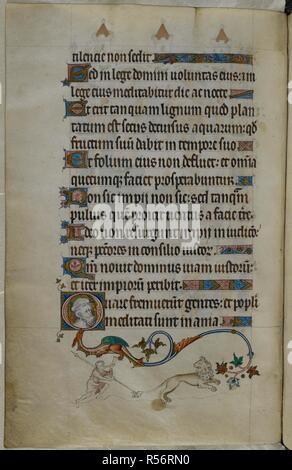 tilencie non sedit
Sed in lege domini voluntas eius: et in
lege eius meditabitur die ac nocte
Et erit tanquam lignum quod plan
tatum est secus decursus aquarum: qd
fructum suum dabit in tempore suo
Et folium eius non defluet: et omnia
quecumque faciet prosperabuntur
Non sic impii non sic: sed tanqm
puluis quem proicit uentus a facie terre
Ideo non resurgunt impii in iudicio
neqz peccatores in consilio iustorum
Qm nouit dominus uiam iustorum
et iter impiorum peribit
Quare fremuerunt gentes: et populi
meditati sunt inania
alamy
Image ID: R56RN0
www.alamy.com